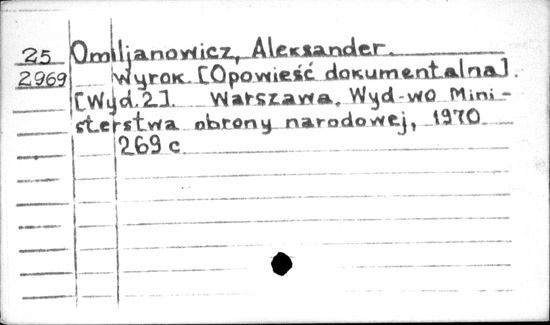 25 Omiljanowicz, Aleksander.
2969 Wyrok [Opowieść dokumentalna].
[Wyd. 2]. Warszawa, Wyd-wo Mini-
sterstwa obrony narodowej, 1970
269 c